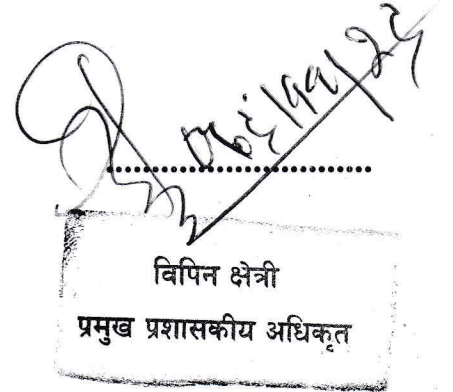 विपिन क्षेत्री
प्रमुख प्रशासकीय अधिकृत